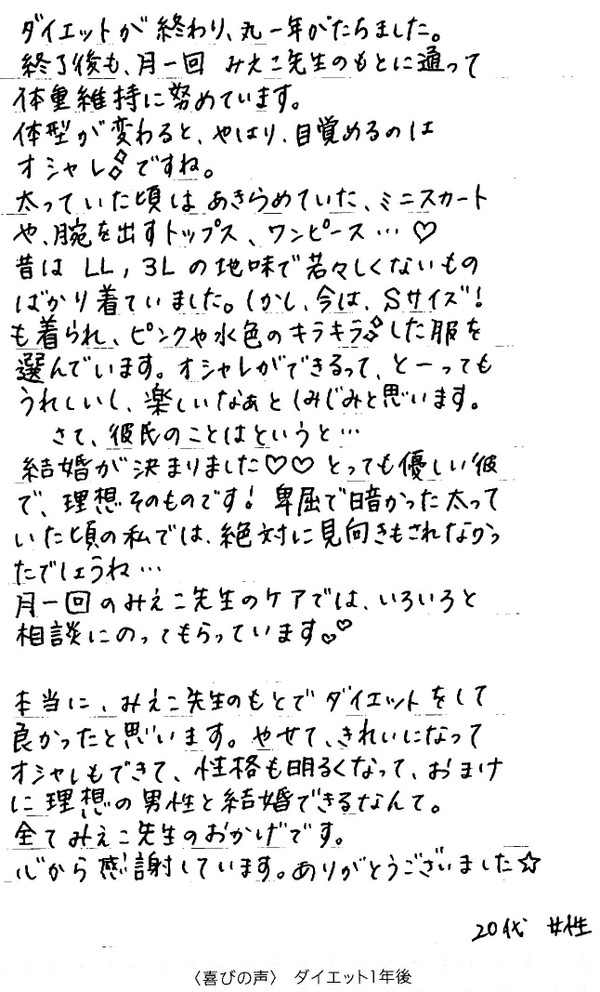 ダイエットが終わり、丸一年がたちました。
終了後も、月一回 みえこ先生のもとに通って
体重維持に努めています。
体型が変わると、やはり、目覚めるのは
オシャレですね。
太っていた頃は あきらめていた、ミニスカート
や、腕を出すトップス、ワンピース…♡
昔は LL，3L の地味で若々しくないもの
ばかり着ていました。しかし、今は、Sサイズ！
も着られ、ピンクや水色のキラキラした服を
選んでいます。オシャレができるって、とーっても
うれしいし、楽しいなぁとしみじみと思います。
さて、彼氏のことはというと…
結婚が決まりました♡♡ とっても優しい彼
で、理想そのものです！ 卑屈で暗かった太って
いた頃の私では、絶対に見向きもされなかっ
たでしょうね…
月一回のみえこ先生のケアでは、いろいろと
相談にのってもらっています♡♡
本当に、みえこ先生のもとでダイエットをして
良かったと思います。やせて、きれいになって
オシャレもできて、性格も明るくなって、おまけ
に理想の男性と結婚できるなんて。
全てみえこ先生のおかげです。
心から感謝しています。ありがとうございました☆
20代 女性
〈喜びの声〉 ダイエット1年後